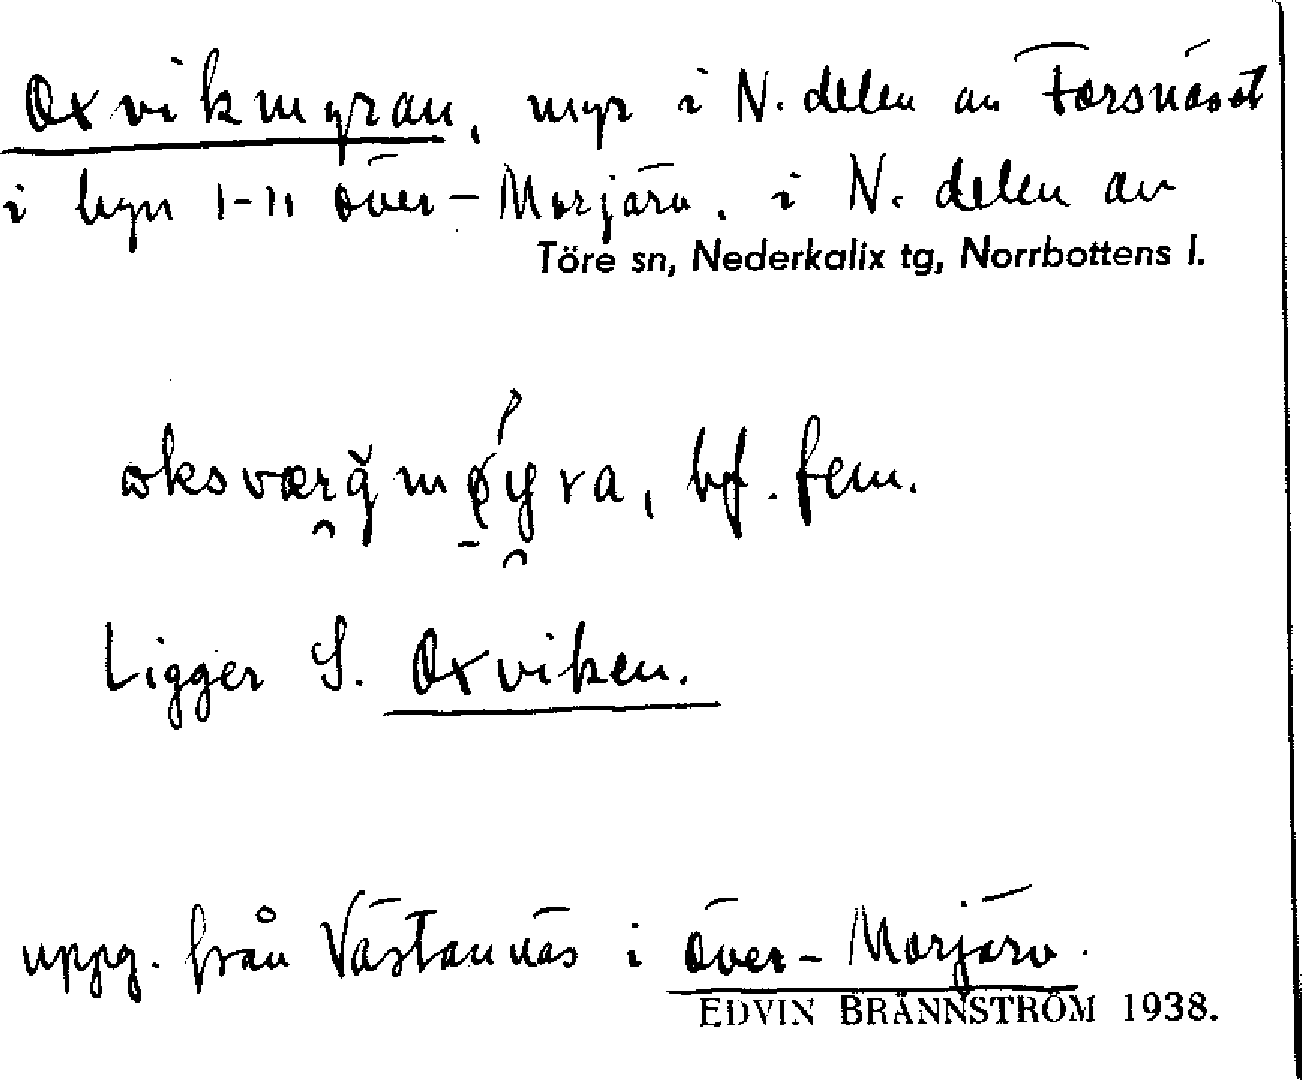 Oxvikmyran, myr i N. delen av Forsnäset
i byn 1-11 över-Morjärv. i N. delen av
Töre sn, Nederkalix tg, Norrbottens l.
bf. fem.
Ligger S. Oxviken.
uppg. från Västannäs i över-Morjärv.
EDVIN BRÄNNSTRÖM 1938.